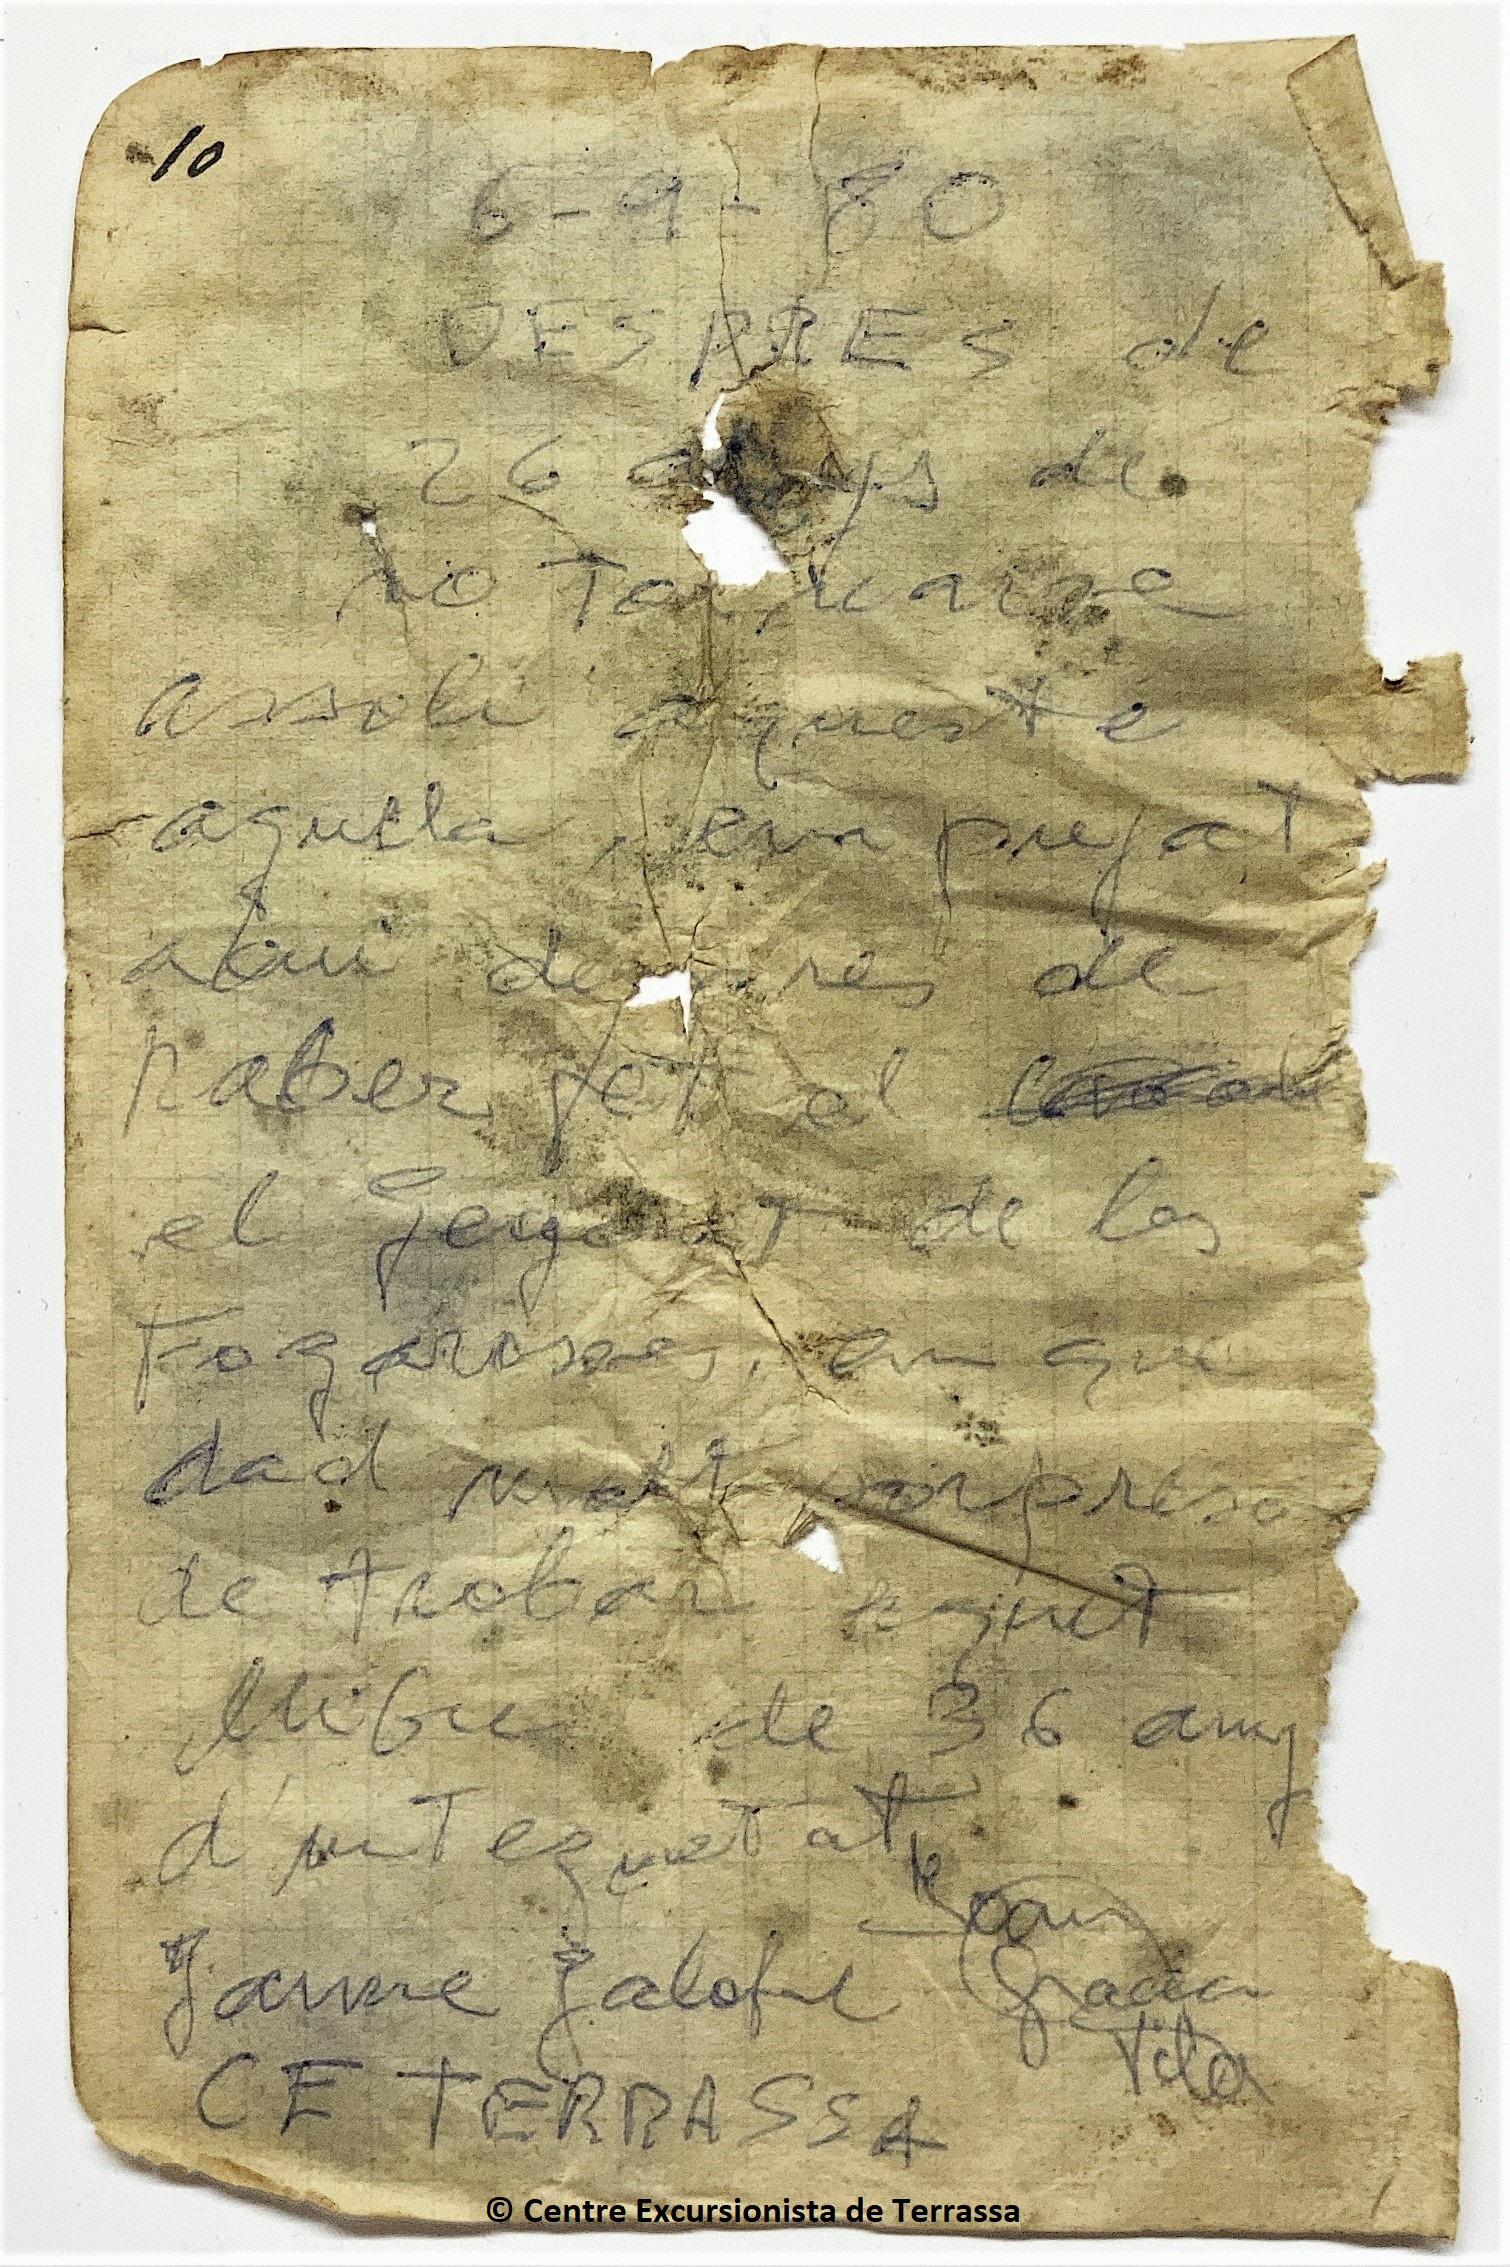 10
6-9-80
DESPRES de
26 anys de
no Tornar a
assoli aqueste
agulla, em pujat
abui despres de
haber fet el
el Gegant de les
Fogarosses, em que
dad molt sorpresos
de trobar aquet
llibre de 36 anys
d'antequetat
Joan
Jaume Galofre Gracia
Vila
CE TERRASSA
© Centre Excursionista de Terrassa